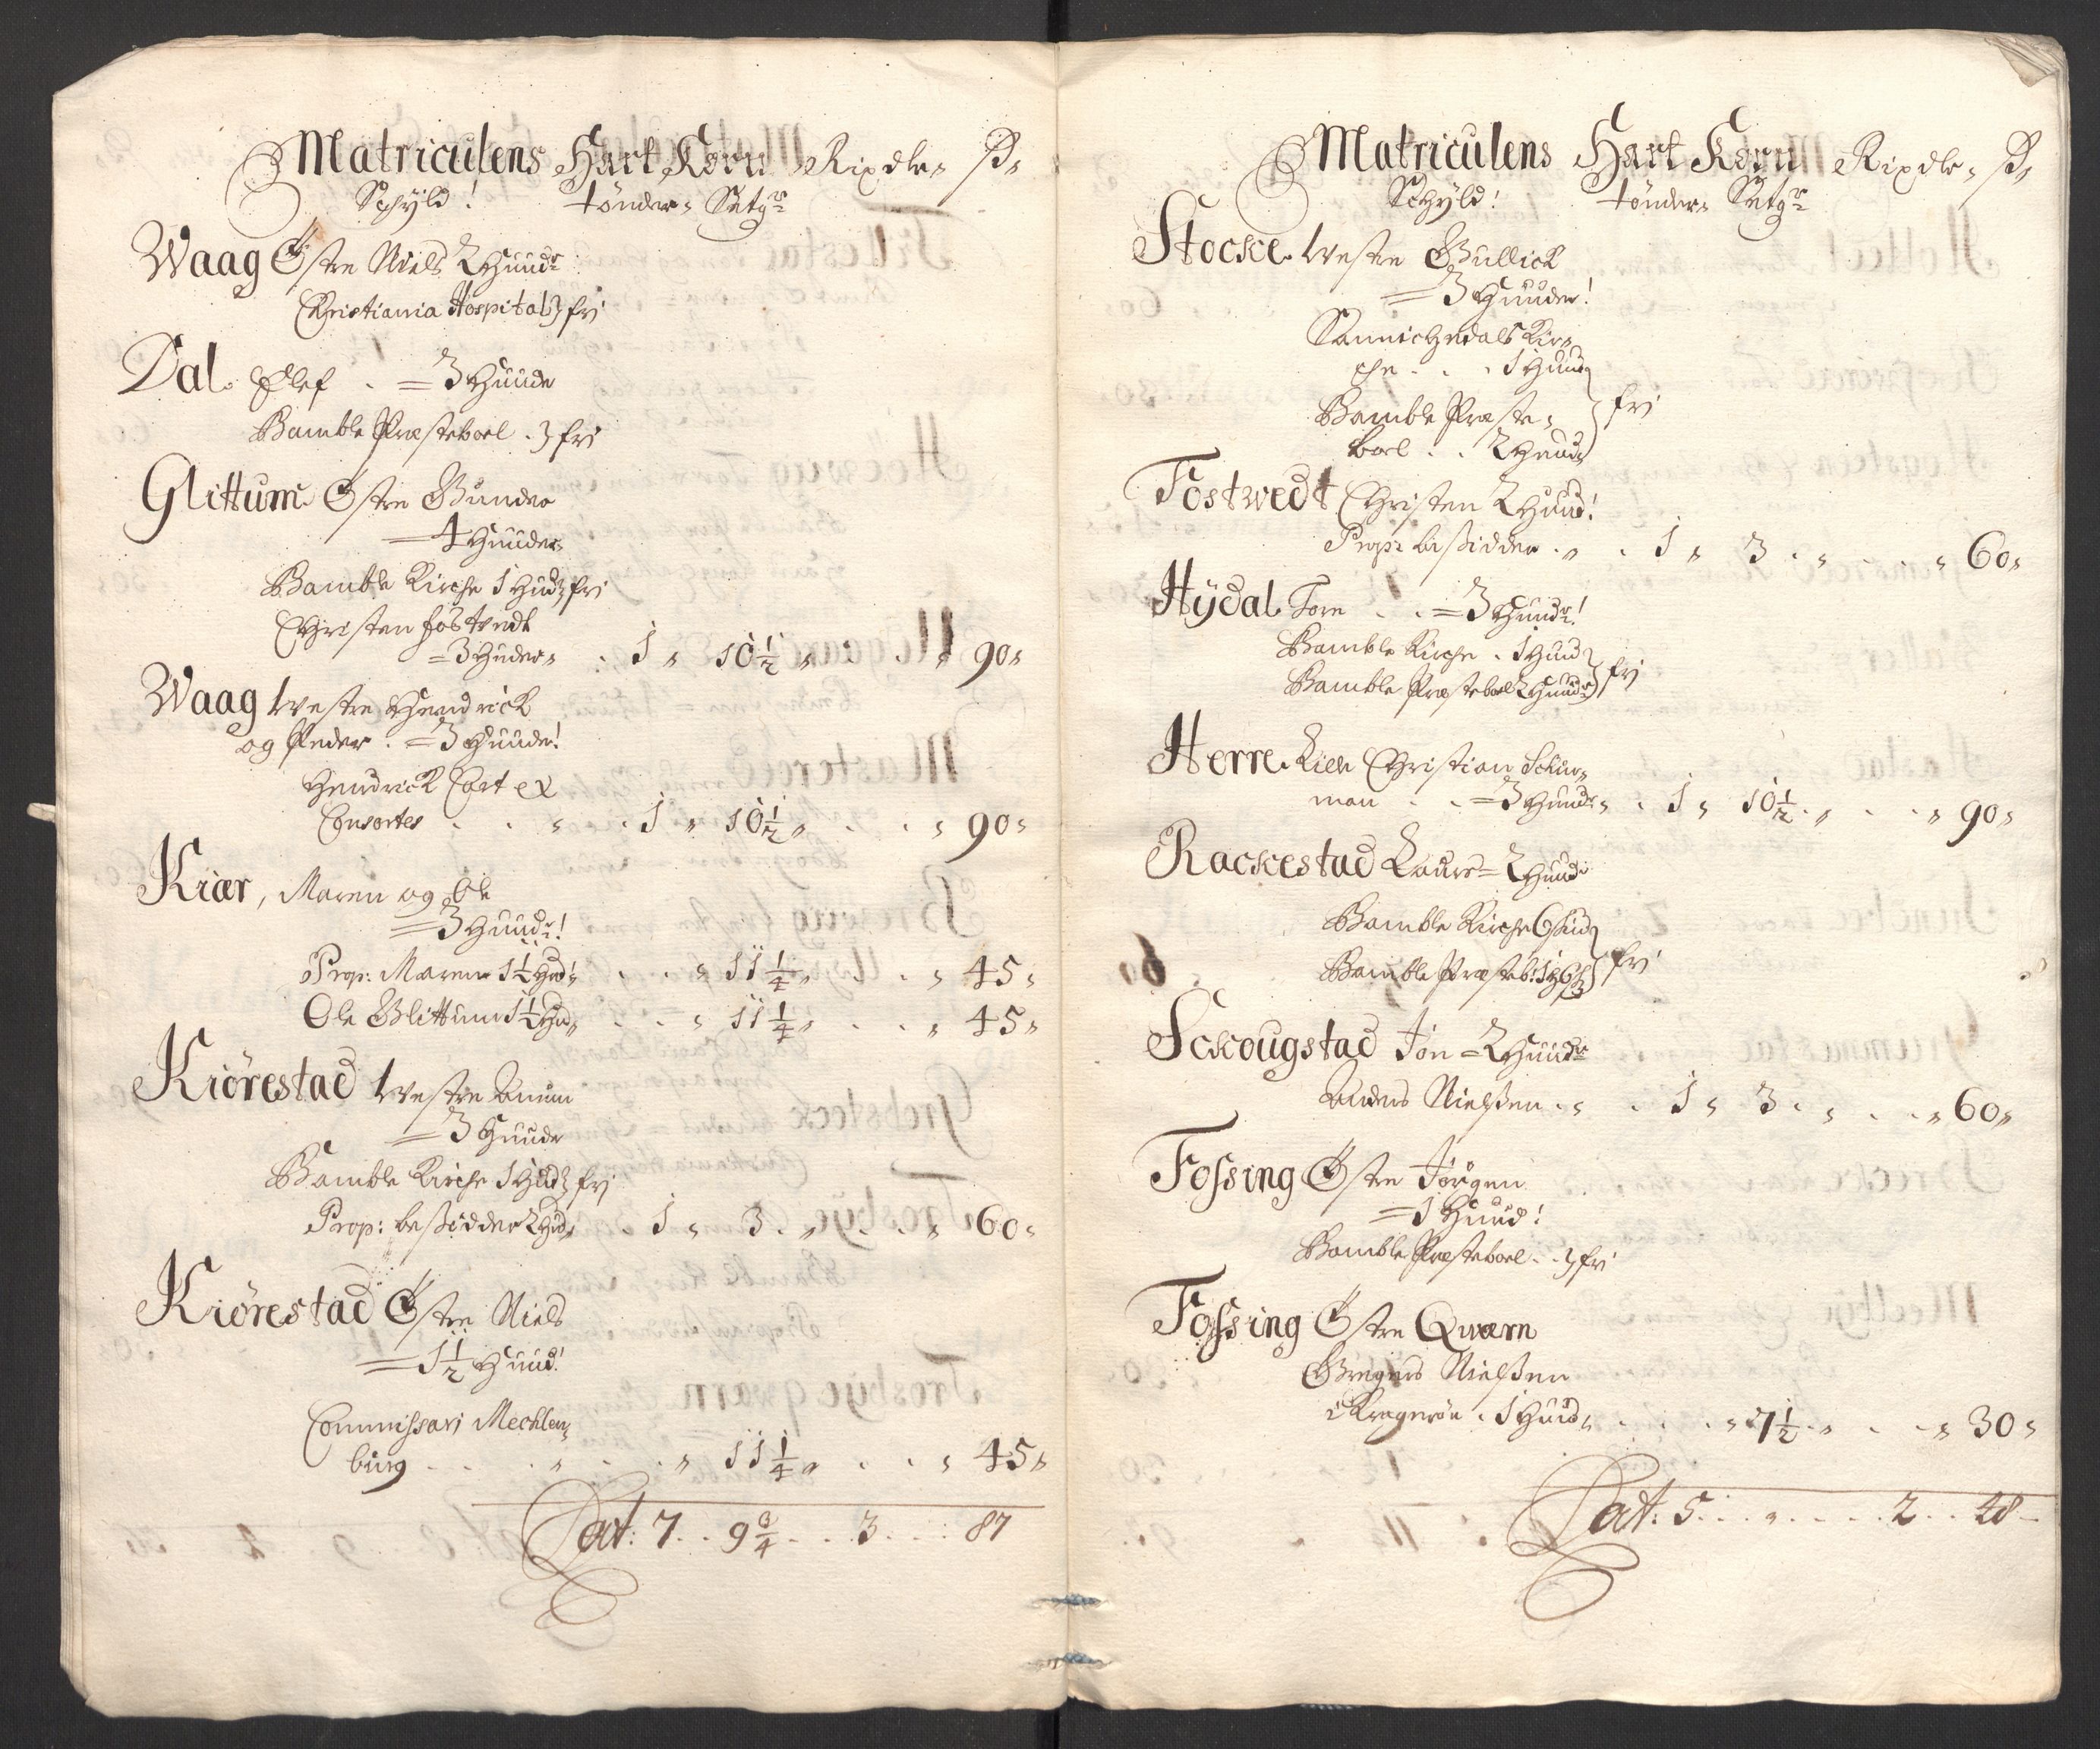 Matriculens Hart Korn Rixdlr. ß.
Schyld! tönder. Setgr
Waag Østre Niels 2 Huudr
Christiania Hospital} fri
Dal. Elef . = 3 Huude
Bamble Præsteboel . } fri
Glittum Østre Gunder
= 4 Huuder
Bamble Kirche 1 Hud} fri
Christen fostvedt
= 3 Huder . 1 " 10½ " . . " 90 "
Waag Westre Hendrick
og Peder . = 3 Huude!
Hendrick Cort ex
Consortes . . " . 1 " 10½ " . . " 90 "
Kiær, Maren og Ole
= 3 Huudr!
Prop: Maren 1½ Hud . . " 11¼ " . . " 45 "
Ole Glittum 1½ Hu . . " 11¼ " . . " 45 "
Kiörestad Westre
= 3 Huudr
Bamble Kirche 1 Hud} fri
Prop: beßidder 2 Hud . 1 " 3 . " . . " 60 "
Kiörestad Østre Niels
= 1½ Huud!
Commissari Mechlen-
burg . . . " . . " 11¼ " . . " 45 "
Lat: 7 . . 9¾ . . 3 . . : 87
Matriculens Hart Korn Rixdlr. ß.
Schyld! tönder. Setgr
Stocke. Westre Gullick
= 3 Huuder!
Sannichedals Kir-
che . . . 1 Huud
Bamble Præste- } fri
boel . . 2 Huud
Fostwedt Christen 2 Huud!
Prop: beßidder . " . 1 " 3 . " . . " 60 "
Hÿdal Tore . . = 3 Huudr!
Bamble Kirche . 1 Hud
Bamble Præsteboel 2 Huudr} fri
Herre. Kiele Christian Schur-
man . . = 3 Huudr . 1 " 10½ . " . . " 90 "
Rackestad Laurs = 2 Huud
Bamble Kirche 6 skind
Bamble Præsteb: 1 H 6 sk} fri
Sckougstad Jon = 2 Huudr
Anders Nielßen . " . 1 " 3 . " . . " 60 "
Fossing Østre Jörgen
= 1 Huud!
Bamble Præsteboel . . } fri
Fossing Østre Qwærn
Gregers Nielßen
i Kragerøe . 1 Huud . . . " 7½ " . . " 30 "
Lat: 5 . . " . . . . 2 . . 48 -